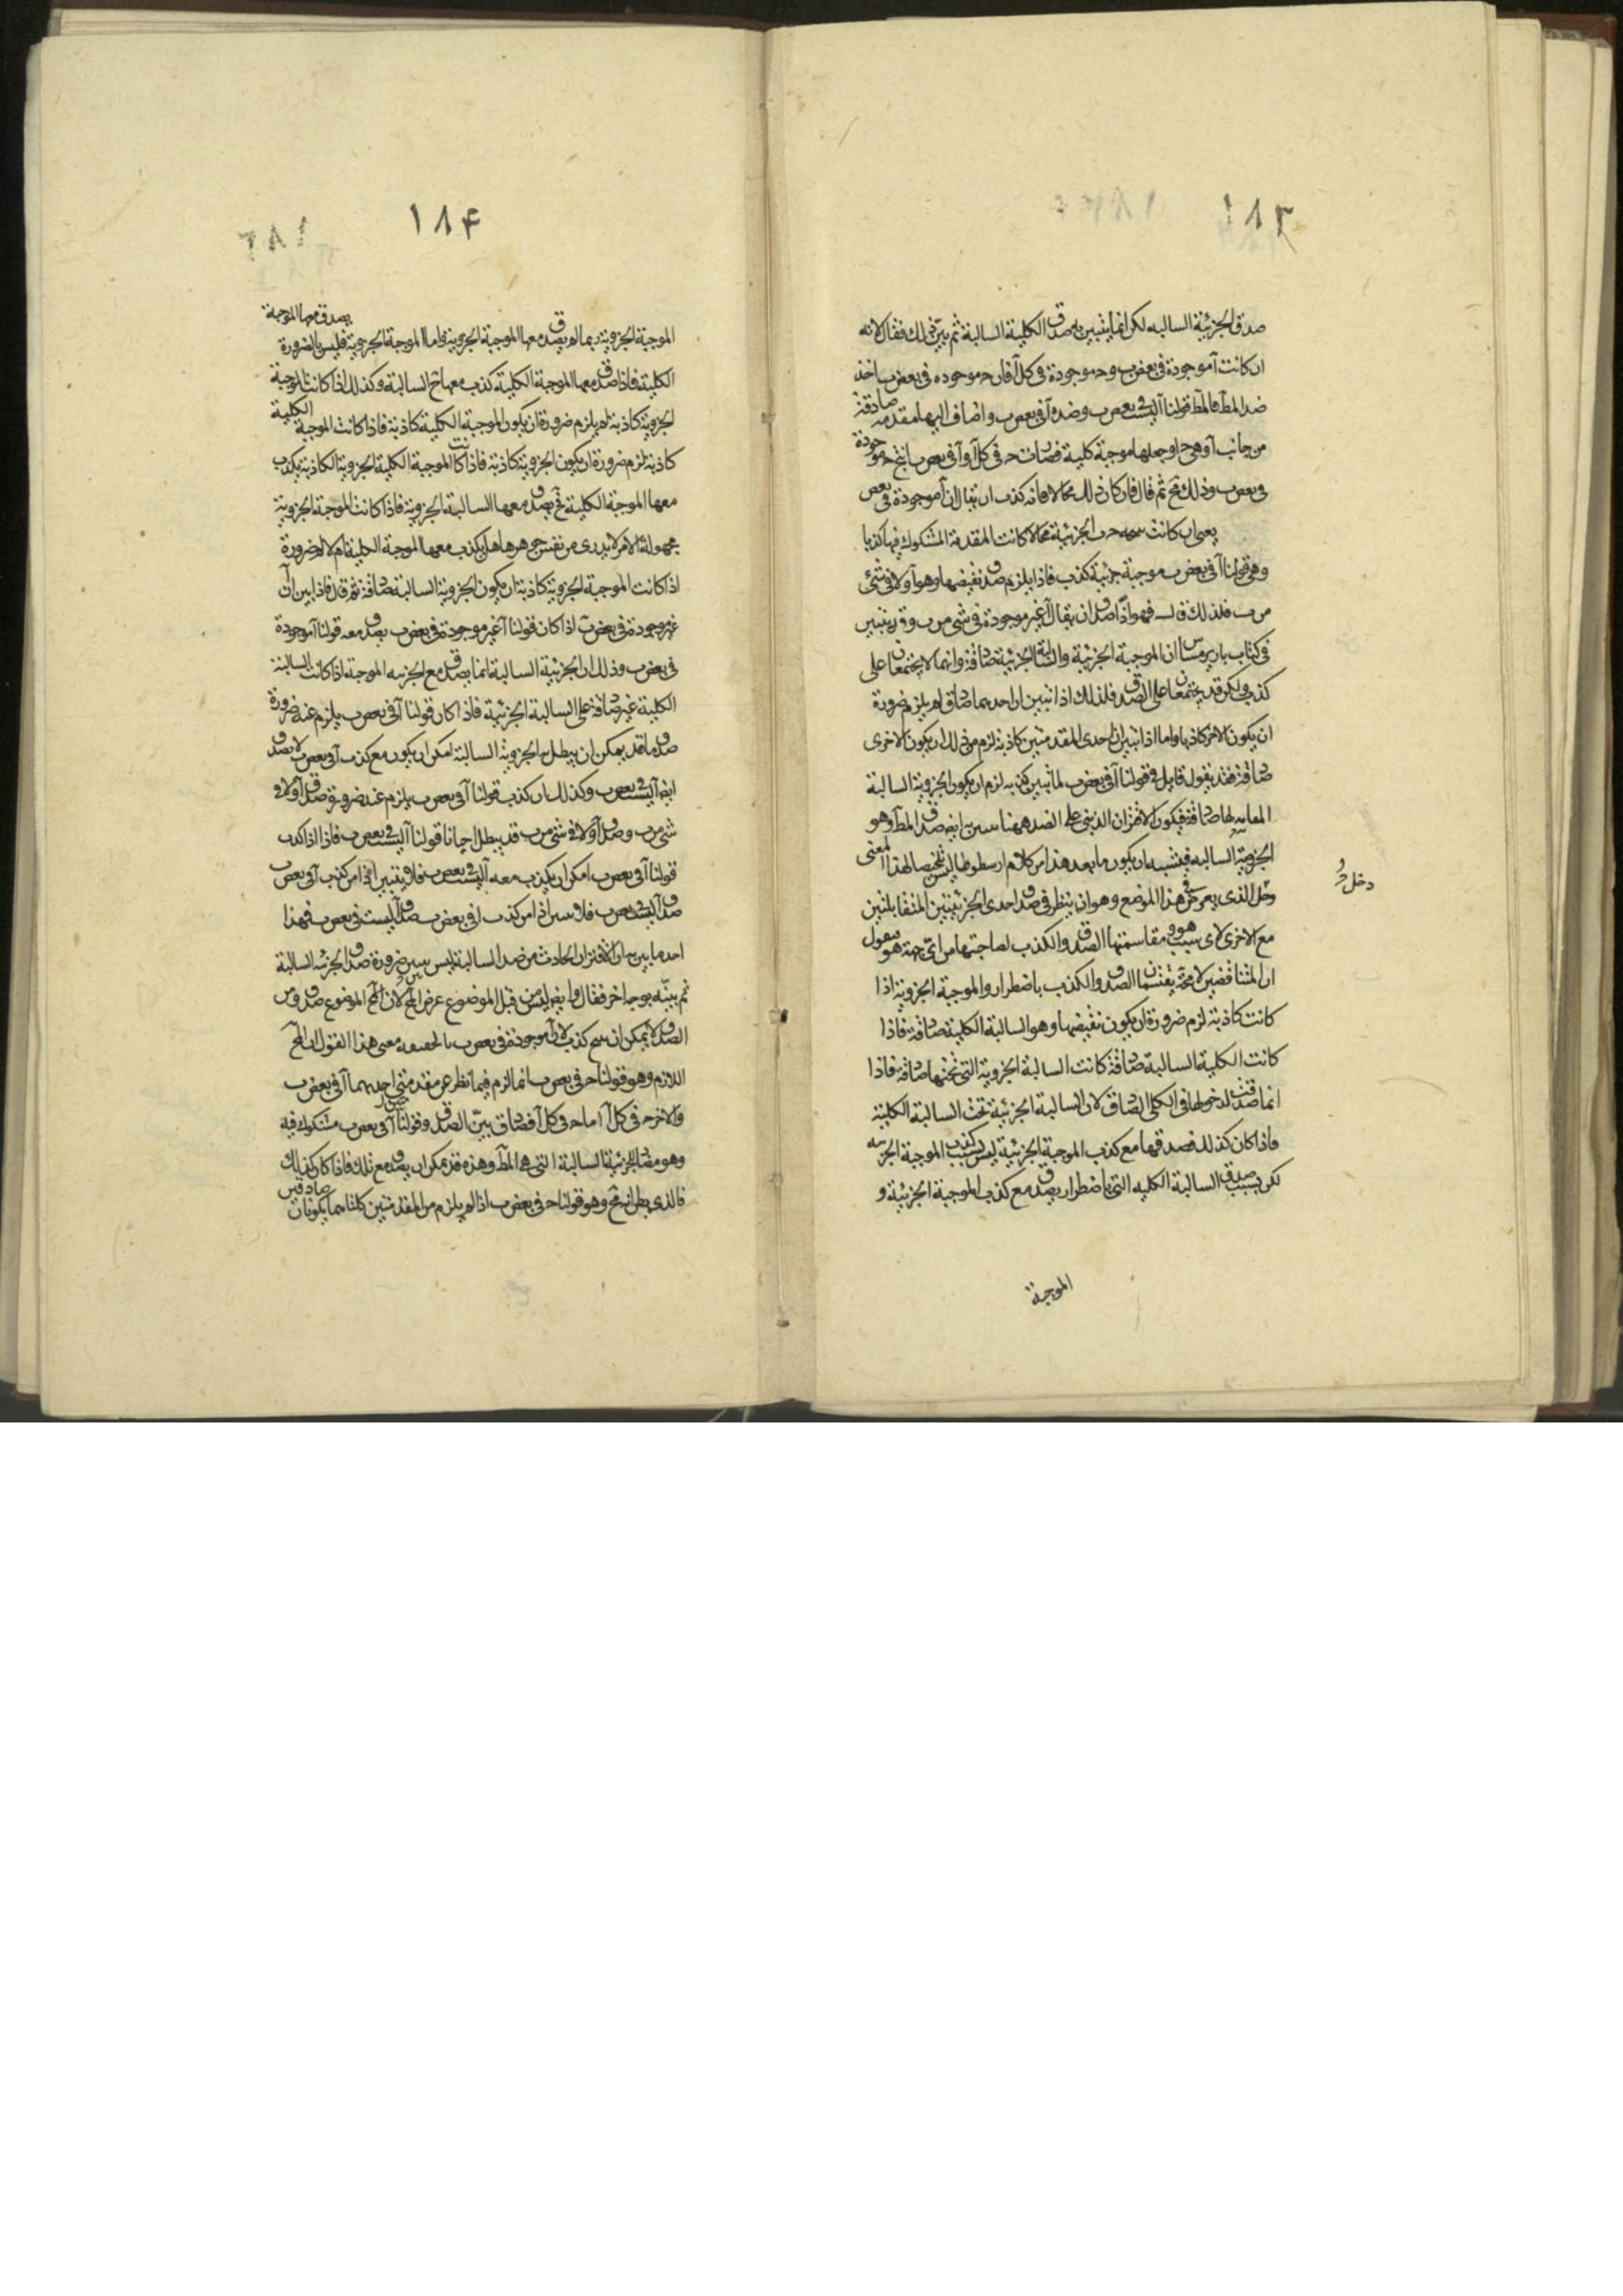 ١٨٣
صدق الجزئية السالبه لكن انما يتبين به صدق الكلية السالبة ثم بيّن ذلك فقال لانه
ان كانت آ موجودة في بعض ب و حـ موجودة في كل آ فان حـ موجوده في بعض ب اخذ
ضد المط فالمط قولنا آ ليست في بعض ب وضده آ في بعض ب واضاف اليها مقدمه صادقة
من جانب آ وهي حـ ا وجعلها موجبة كلية فصارت حـ في كل آ و آ في بعض ب ينتج حـ موجودة
في بعض ب وذلك مح ثم قال فان كان ذلك محالا فانه كذب ان يقال ان آ موجودة في بعض
يعني ان كانت حـ ب الجزئية محالا كانت المقدمة المشكوك فيها كذبا
وهي قولنا آ في بعض ب موجبة جزئية كذب فاذا يلزم صدق نقيضها وهو آ ولا في شئ
من ب فلذلك قال فهو اذًا صدق ان يقال آ غير موجودة في شئ من ب وقد تبين
في كتاب باريرمينياس ان الموجبة الجزئية والسالبة الجزئية صادقة وانما لا يجتمعان على
كذب ولكن قد يجتمعا على الصدق فلذلك اذا تبين ان احدهما صادق لم يلزم ضرورة
ان يكون الاخر كاذبا واما اذا تبين ان احدى المقدمتين كاذبة لزم من ذلك ان يكون الاخرى
صادقة فقد يقول قايل في قولنا آ في بعض ب لما تبين كذبه لزم ان يكون الجزوية السالبة
المقابلة لها صادقة فيكون الاقتران الذي على الضد ههنا يبين به ايضا صدق المط وهو
الجزوية السالبه فيشبه ان يكون ما بعد هذا من كلام ارسطوطاليس تلخيصا لهذا المعنى
دخل
وحل الذي يعرض في هذا الموضع وهو ان ينظر في صدق احدى الجزئيتين المتقابلتين
مع الاخرى لاي سبب هو ومقاسمتها الصدق والكذب لصاحبتها من اي جهة هو فنقول
ان المتناقضين لا محة يقتسما الصدق والكذب باضطرار والموجبة الجزوية اذا
كانت كاذبة لزم ضرورة ان يكون نقيضها وهو السالبة الكلية صادقة فاذا
كانت الكلية السالبة صادقة كانت السالبة الجزوية التي تحتها صادقة فاذا
انما صدقت لدخولها في الكلي الصادق لان السالبة الجزئية تحت السالبة الكلية
فاذا كان كذلك فصدقها مع كذب الموجبة الجزئية ليس بسبب كذب الموجبة الجزئيه
لكن بسبب صدق السالبة الكليه التي باضطرار يصدق مع كذب الموجبة الجزئية و
الموجبة
١٨۴
الموجبة الجزوية ربما لم يصدق معها الموجبة الجزوية واما الموجبة الجزوية فليس بالضرورة يصدق معها الموجبة
الكلية فاذا صدق معها الموجبة الكلية كذب معها ح السالبة وكذلك اذا كانت الموجبة
الجزوية كاذبة لم يلزم ضرورة ان يكون الموجبة الكلية كاذبة فاذا كانت الموجبة الكلية
كاذبة لزم ضرورة ان يكون الجزوية كاذبة فاذا كانت الموجبة الكلية الجزوية الكاذبة يكذب
معها الموجبة الكلية فح يصدق معها السالبة الجزوية فاذا كانت الموجبة الجزوية
مجهولة الامر لا يدرى من نفس جوهرها هل يكذب معها الموجبة الكلية ام لا لم ضرورة
اذا كانت الموجبة الجزوية كاذبة ان يكون الجزوية السالبة صادقة ثم قد فاذا بين ان آ
غير موجودة في بعض ب اذا كان قولنا آ غير موجودة في بعض ب يصدق معه قولنا آ موجودة
في بعض ب وذلك ان الجزئية السالبة انما يصدق مع الجزئيه الموجبة اذا كانت السالبة
الكلية غير صادقة على السالبة الجزئية فاذا كان قولنا آ في بعض ب يلزم عنه ضرورة
صدق ما قد يمكن ان يبطل به الجزوية السالبة امكن ان يكون مع كذب آ في بعض ب لا يصدق
ايضا آ ليست في بعض ب وكذلك ان كذب قولنا آ في بعض ب يلزم عنه ضرورة صدق آ ولا في
شئ من ب وصدق آ ولا في شئ من ب قد يبطل احيانا قولنا آ ليست في بعض ب فاذا اذا كذب
قولنا آ في بعض ب امكن ان يكذب معه آ ليست في بعض ب فلا يتبين اذا من كذب آ في بعض ب
صدق آ ليست في بعض ب فلا يتبين اذا من كذب آ في بعض ب صدق آ ليست في بعض ب فهذا
احد ما يبين به ان الاقتران الحادث من ضد السالبة ليس يبين ضرورة صدق الجزئيه السالبة
ثم بيّنه بوجه اخر فقال وايضا ليس من قبل الموضوع عرض المح لان المح الموضوع صدق ومن
الصدق لا يمكن ان ينتج كذب لان آ موجودة في بعض ب بالحقيقه معنى هذا القول ان المح
اللازم وهو قولنا حـ في بعض ب انما لزم فيما نظر عن مقدمتي احدهما آ في بعض ب
والاخر حـ في كل آ اما حـ في كل آ فصادق بيّن الصدق وقولنا آ في بعض ب مشكوك فيه
وهو مضاد للجزئية السالبة التي هي المط وهذه قد يمكن ان يصدق مع تلك فاذا كان كذلك
فالذي بطل انه مح وهو قولنا حـ في بعض ب اذا لم يلزم من المقدمتين كلتاهما يكونان صادقين